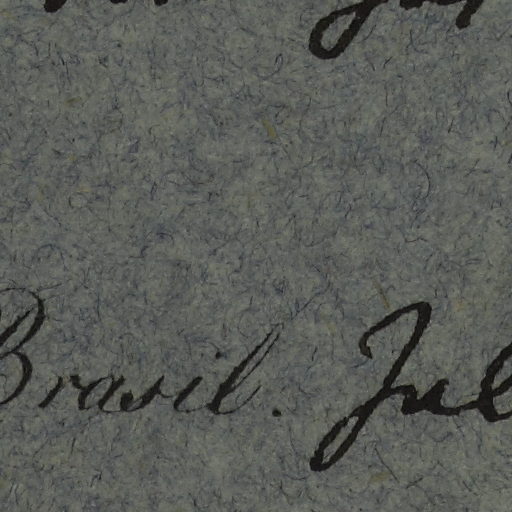 Brasil. Jul